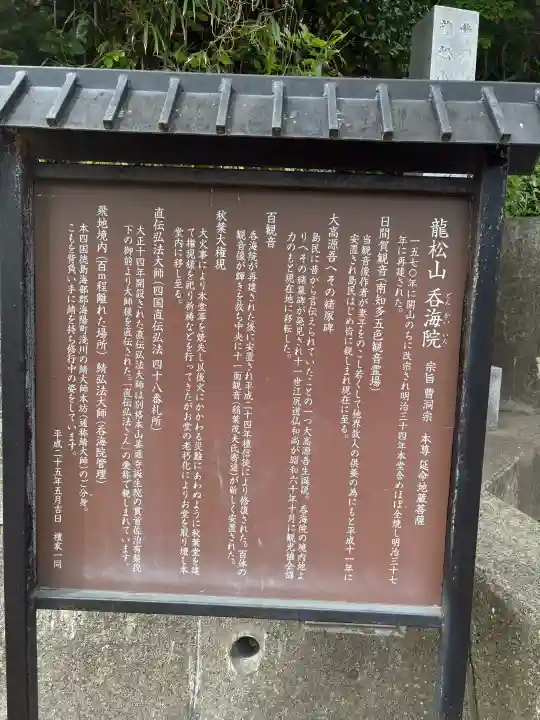 龍松山 呑海院 宗旨 曹洞宗 本尊 延命地蔵菩薩
どんかいいん
一五七〇年に開山のちに改宗され明治三十四年本堂含めほぼ全焼し明治三十七
年に再建された。
日間賀観音(南知多五色観音霊場)
当観音像作者が妻子をのこし若くして他界故人の供養の為にもと平成十一年に
安置され島民はじめ皆に親しまれ現在に至る。
大高源吾へその緒塚碑
島民に昔から言伝えられていたことの一つ大高源吾生誕説。呑海院の境内地よ
り(へその緒墓碑が発見され十一世江尻道仙和尚が昭和六十年十月に観光協会協
力のもと現在地に移転した。
百観音
呑海院が再建された後に安置され平成二十四年檀信徒により修復された。百体の
観音像が輝きを放ち中央に十一面観音(稲葉茂夫氏寄進)が新しく安置された。
秋葉大権現
大火事により本堂等を焼失し以後火にかかわる災難にあわぬように秋葉堂を建
て権現様を祀り祈祷などを行ってきたがお堂の老朽化によりお堂を取り壊し本
堂内に移し至る。
直伝弘法大師(四国直伝弘法 四十八番札所)
大正十四年開設された直伝弘法大師は別格本山善通寺誕生院の貫首佐治有契猊
下の御前より大師様を直伝された「直伝弘法さん」の愛称で親しまれています。
飛地境内(百m程離れた場所) 鯖弘法大師(呑海院管理)
本四国徳島海部郡海陽町浅川の鯖大師本坊(通称鯖大師)のご分身。
こもを背負い手に鯖を持ち修行中の姿をしています。
平成二十五年五月吉日 檀家一同